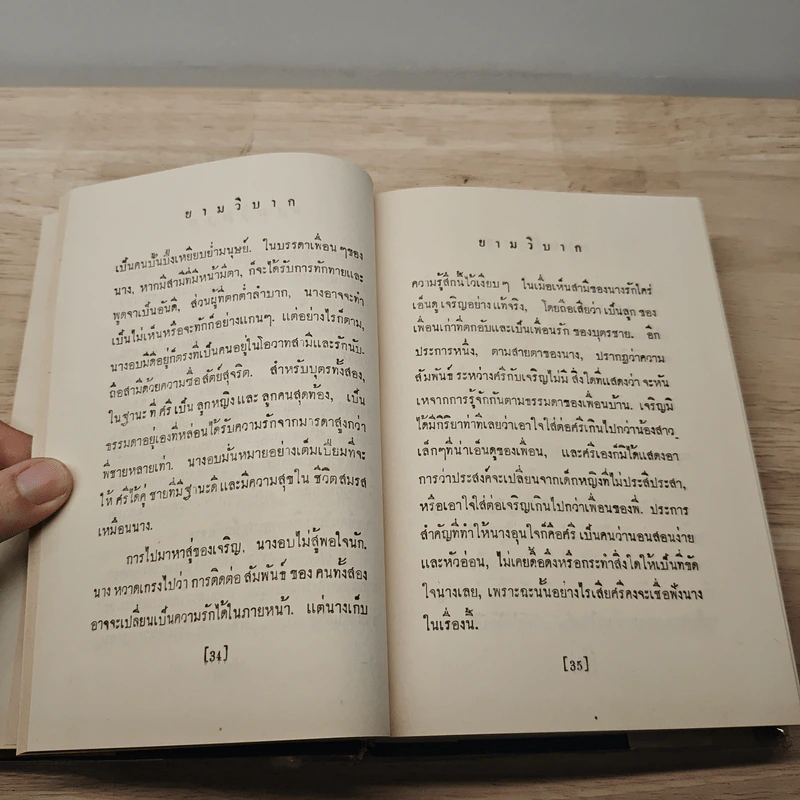 ยามวิบาก
เป็นคนปั้นปึ่งเหยียบย่ำมนุษย์. ในบรรดาเพื่อนๆของ
นาง, หากมีสามีที่มีหน้ามีตา, ก็จะได้รับการทักทายและ
พูดจาเป็นอันดี, ส่วนผู้ที่ตกต่ำลำบาก, นางอาจจะทำ
เป็นไม่เห็นหรือจะทักก็อย่างแกนๆ. แต่อย่างไรก็ตาม,
นางอบมีดีอยู่ก็ตรงที่เป็นคนอยู่ในโอวาทสามีและรักนับ
ถือสามีด้วยความซื่อสัตย์สุจริต. สำหรับบุตรทั้งสอง,
ในฐานะที่ศรีเป็นลูกหญิงและลูกคนสุดท้อง, เป็น
ธรรมดาอยู่เองที่หล่อนได้รับความรักจากมารดาสูงกว่า
พี่ชายหลายเท่า. นางอบมั่นหมายอย่างเต็มเปี่ยมที่จะ
ให้ศรีได้คู่ชายที่มีฐานะดีและมีความสุขในชีวิตสมรส
เหมือนนาง.
การไปมาหาสู่ของเจริญ, นางอบไม่สู้พอใจนัก.
นางหวาดเกรงไปว่าการติดต่อสัมพันธ์ของคนทั้งสอง
อาจจะเปลี่ยนเป็นความรักได้ในภายหน้า. แต่นางเก็บ
[34]
ยามวิบาก
ความรู้สึกนี้ไว้เงียบๆ ในเมื่อเห็นสามีของนางรักใคร่
เอ็นดูเจริญอย่างแท้จริง, โดยถือเสียว่าเป็นลูกของ
เพื่อนเก่าที่ตกอับและเป็นเพื่อนรักของบุตรชาย. อีก
ประการหนึ่ง, ตามสายตาของนาง, ปรากฏว่าความ
สัมพันธ์ระหว่างศรีกับเจริญไม่มีสิ่งใดที่แสดงว่าจะหัน
เหจากการรู้จักกันตามธรรมดาของเพื่อนบ้าน. เจริญมิ
ได้มีกิริยาท่าทีเลยว่าเอาใจใส่ต่อศรีเกินไปกว่าน้องสาว
เล็กๆที่น่าเอ็นดูของเพื่อน, และศรีเองก็มิได้แสดงอา
การว่าประสงค์จะเปลี่ยนจากเด็กหญิงที่ไม่ประสีประสา,
หรือเอาใจใส่ต่อเจริญเกินไปกว่าเพื่อนของพี่. ประการ
สำคัญที่ทำให้นางอุ่นใจก็คือศรีเป็นคนว่านอนสอนง่าย
และหัวอ่อน, ไม่เคยดื้อดึงหรือกระทำสิ่งใดให้เป็นที่ขัด
ใจนางเลย, เพราะฉะนั้นอย่างไรเสียศรีคงจะเชื่อฟังนาง
ในเรื่องนี้.
[35]